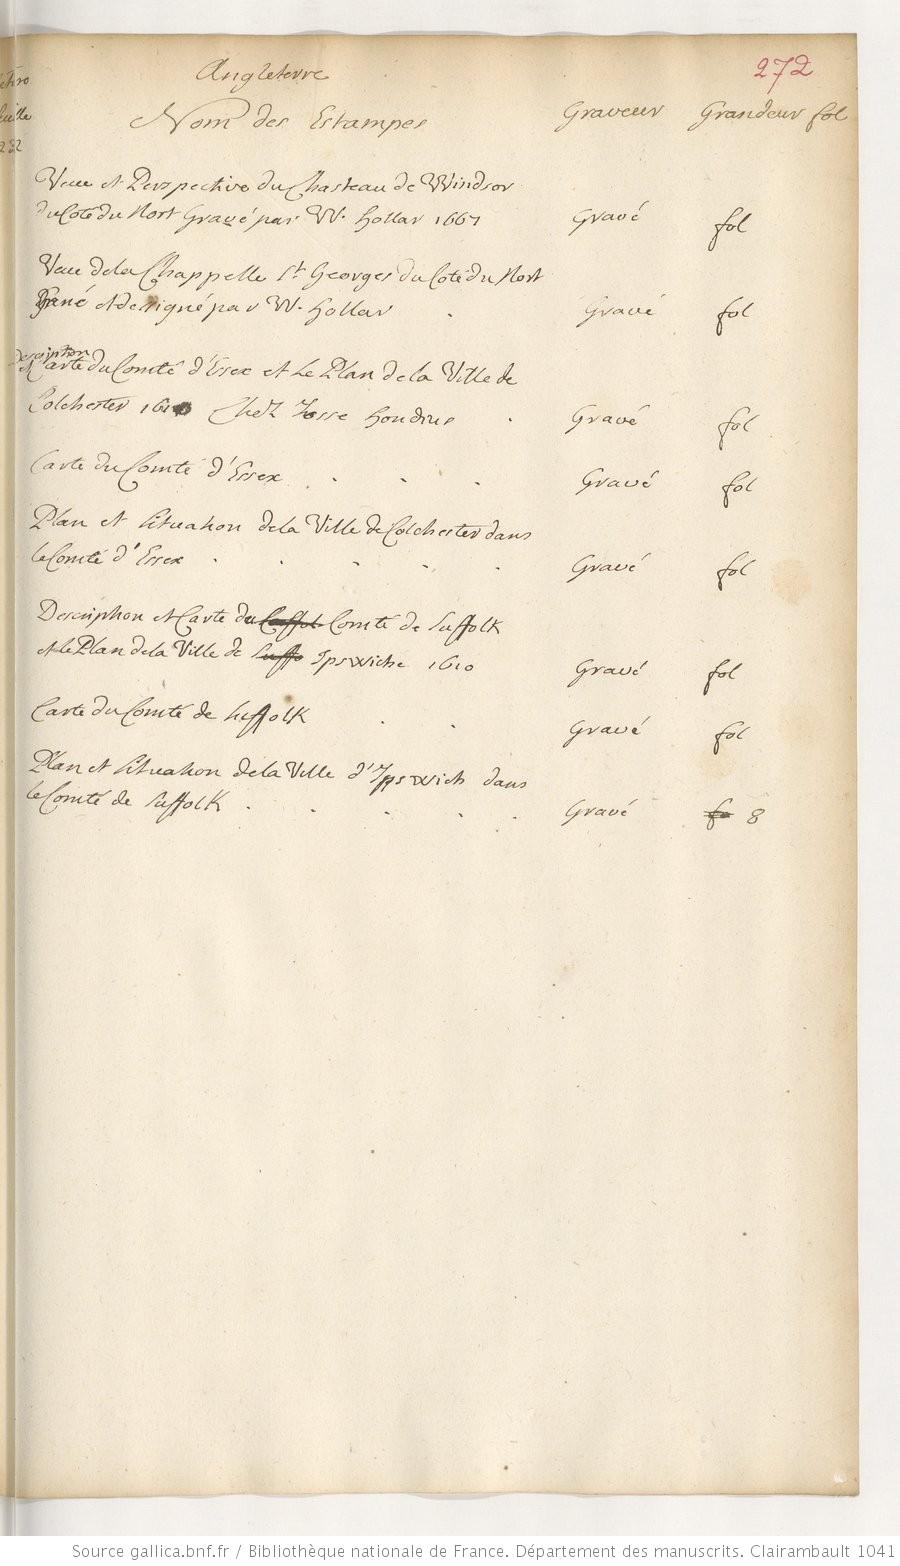 Angleterre
272
Nom des Estampes Graveur Grandeur fol
Veue et Perspective du Chasteau de Windsor
du Coté du Nort Gravé par W. Hollar 1667 Gravé fol
Veue de la Chappelle St Georges du Coté du Nort
et dessigné par W. Hollar . Gravé fol
Description
et Carte du Comté d'Essex et Le Plan de la Ville de
Colchester 1610 Chez Josse Hondius . Gravé fol
Carte du Comté d'Essex . . . Gravé fol
Plan et Situation de la Ville de Colchester dans
le Comté d'Essex . . . . . Gravé fol
Description et Carte du Comté de Suffolk
et le Plan de la Ville de Suffo Ipswiche 1610 Gravé fol
Carte du Comté de Suffolk . . Gravé fol
Plan et Situation de la Ville d'Ippswich dans
le Comté de Suffolk . . . . . Gravé fo 8
Source gallica.bnf.fr / Bibliothèque nationale de France. Département des manuscrits. Clairambault 1041